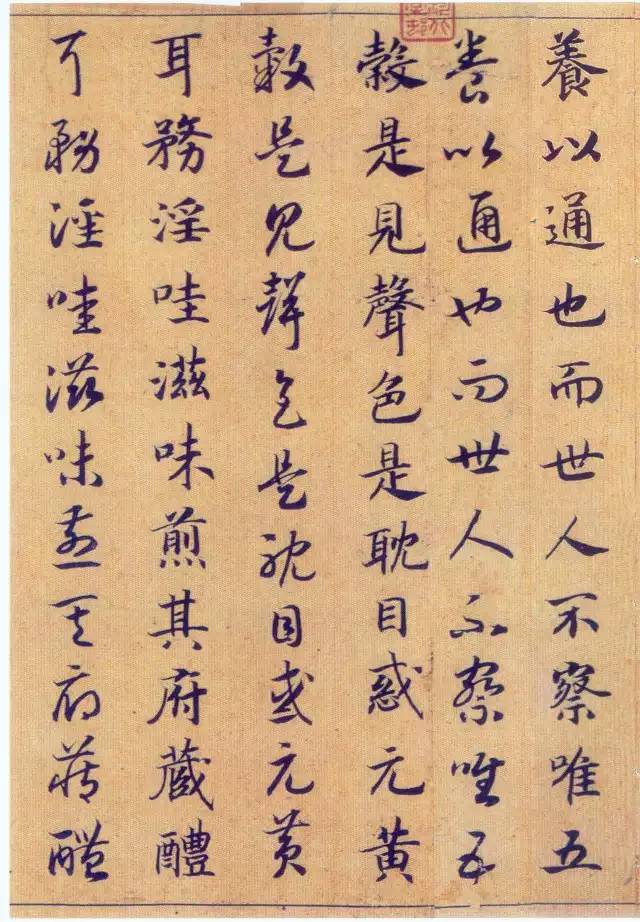 養以通也而世人不察唯五
養以通也而世人不察唯五
穀是見聲色是耽目惑元黃
穀是見聲色是耽目惑元黃
耳務淫哇滋味煎其府藏醴
耳務淫哇滋味煎其府藏醴